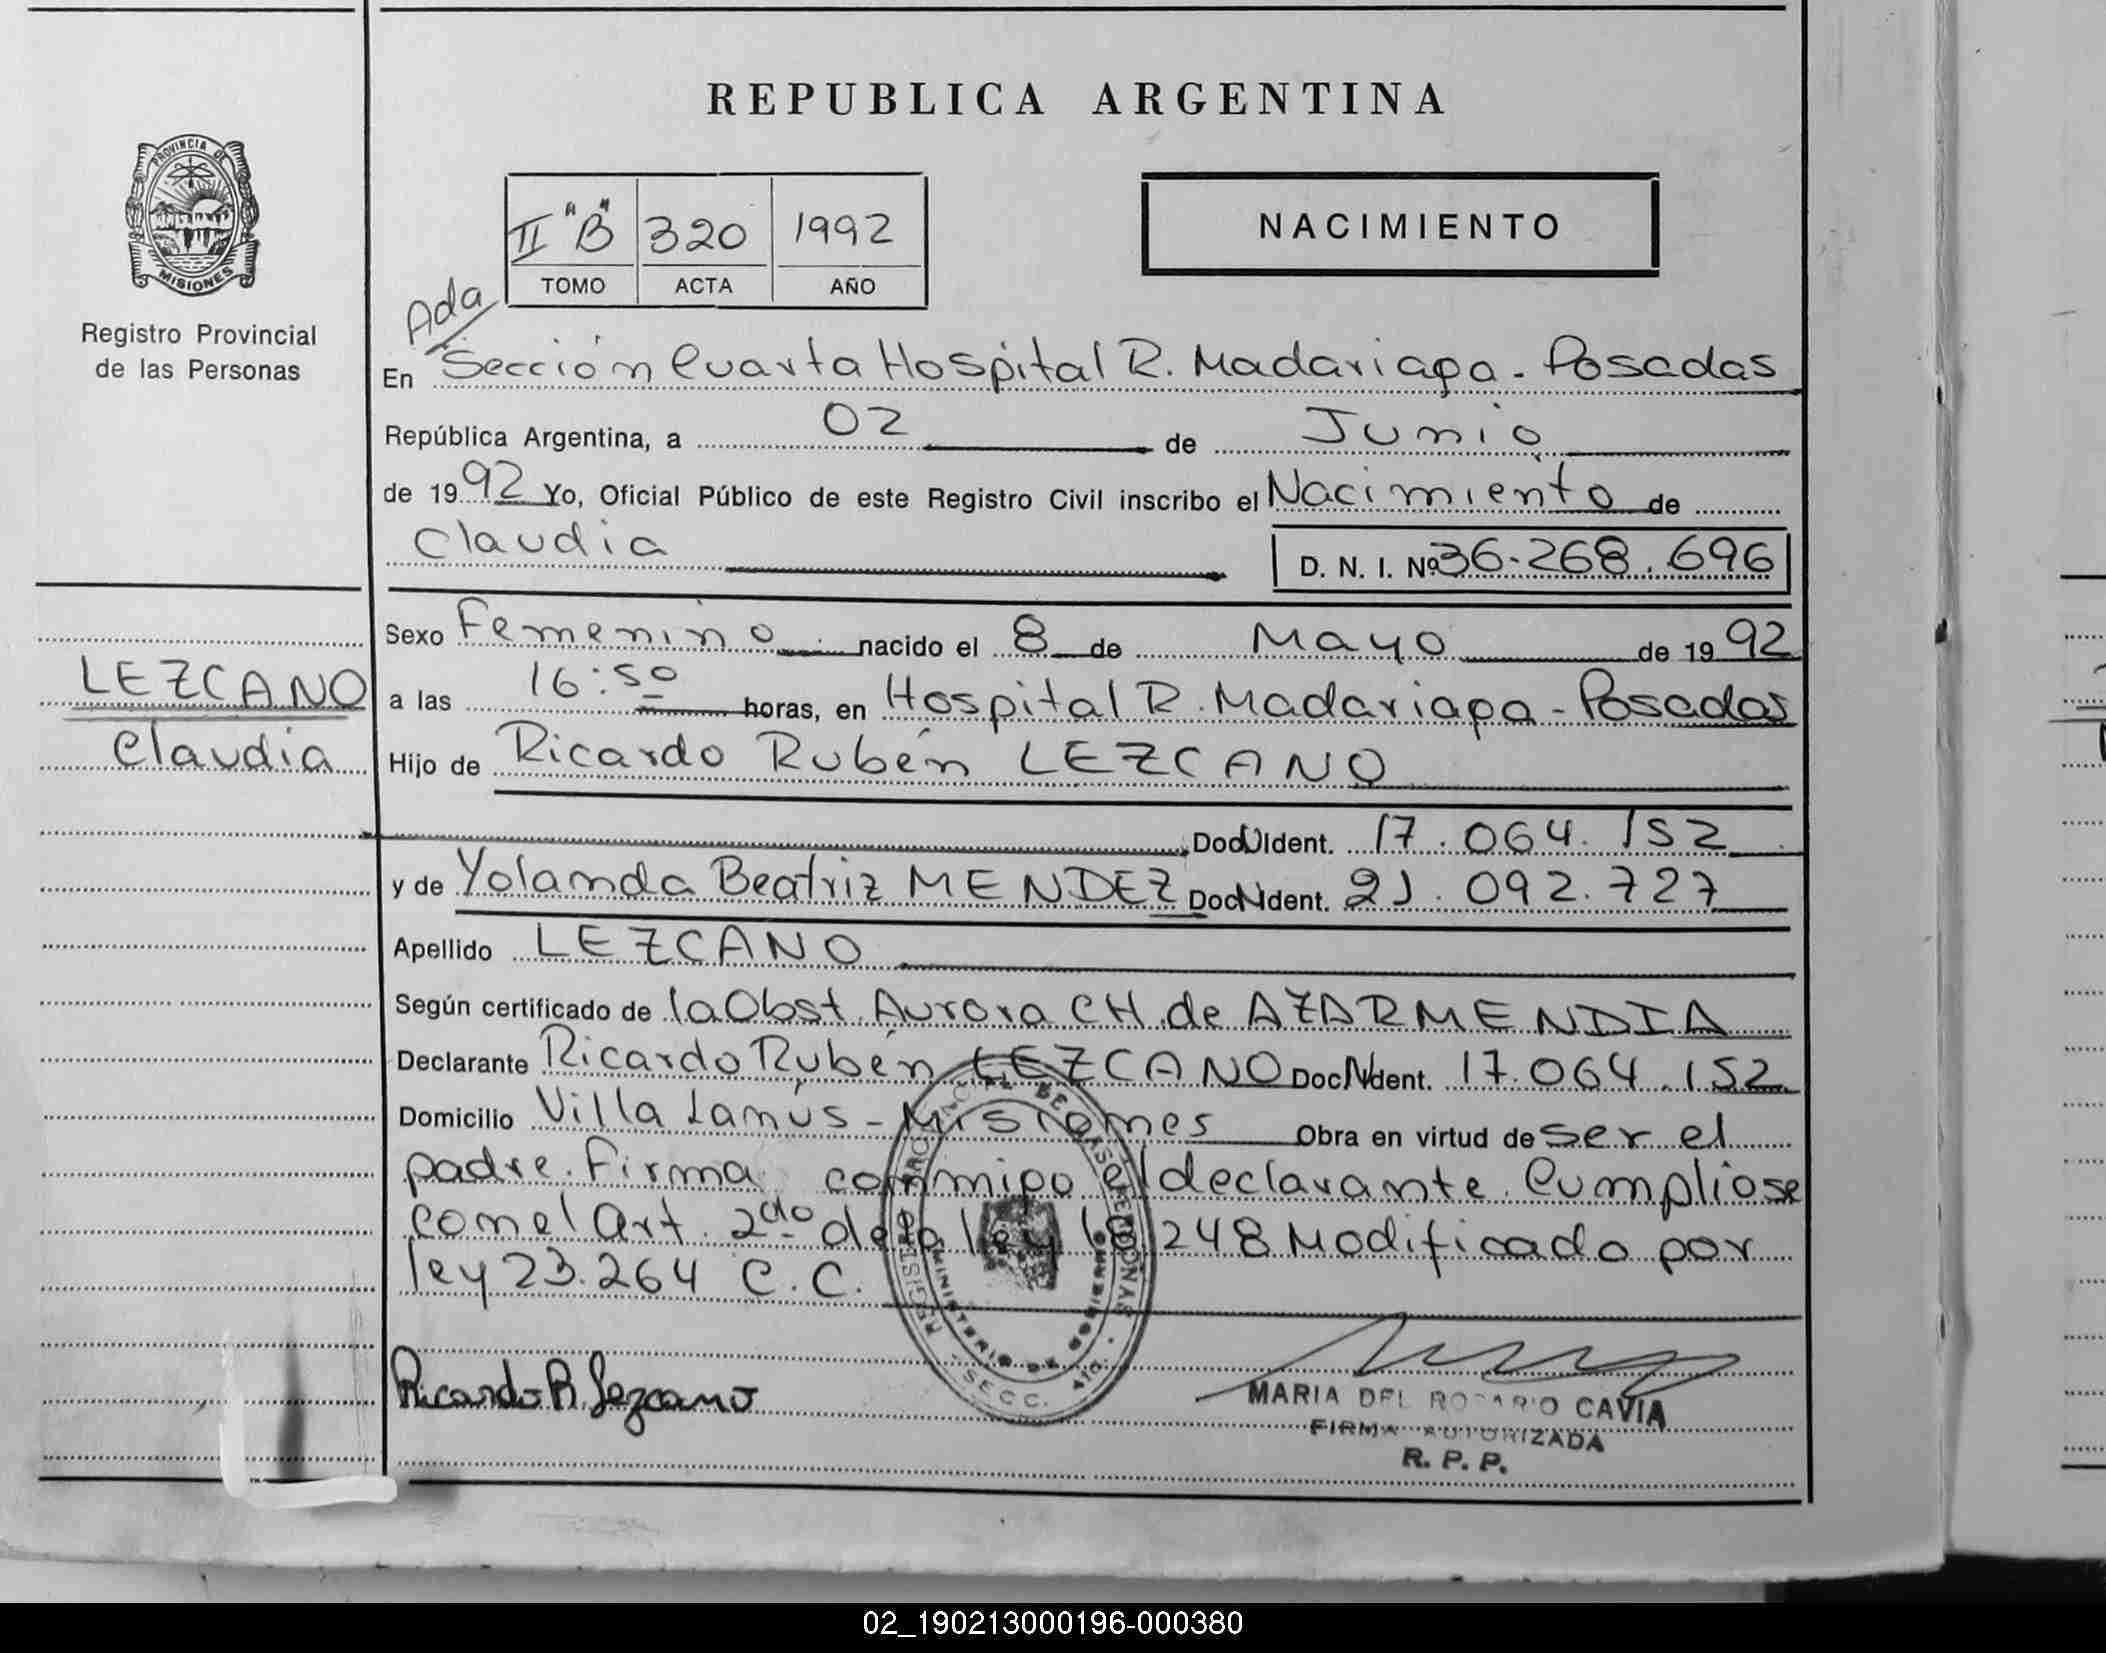 REPUBLICA ARGENTINA
PROVINCIA DE
MISIONES
Registro Provincial
de las Personas
II "B" 320 1992
TOMO ACTA AÑO
NACIMIENTO
Ada
En Sección Cuarta Hospital R. Madariaga - Posadas
República Argentina, a 02 de Junio
de 1992 Yo, Oficial Público de este Registro Civil inscribo el Nacimiento de
Claudia D. N. I. Nº 36.268.696
Sexo Femenino nacido el 8 de Mayo de 1992
LEZCANO
Claudia
a las 16:50 horas, en Hospital R. Madariaga - Posadas
Hijo de Ricardo Rubén LEZCANO
Doc. Ident. 17.064.152
y de Yolanda Beatriz MENDEZ Doc. Ident. 21.092.727
Apellido LEZCANO
Según certificado de la Obst. Aurora CH. de AZARMENDIA
Declarante Ricardo Rubén LEZCANO Doc. Ident. 17.064.152
Domicilio Villa Lanús - Misiones Obra en virtud de ser el
padre. Firma conmigo el declarante. Cumpliose
con el Art. 2do de la ley 18.248 Modificado por
ley 23.264 C.C.
REGISTRO PROVINCIAL DE LAS PERSONAS
MINISTERIO DE GOBIERNO
SECC. 4ta.
Ricardo R. Lezcano
MARIA DEL ROSARIO CAVIA
FIRMA AUTORIZADA
R. P. P.
02_190213000196-000380